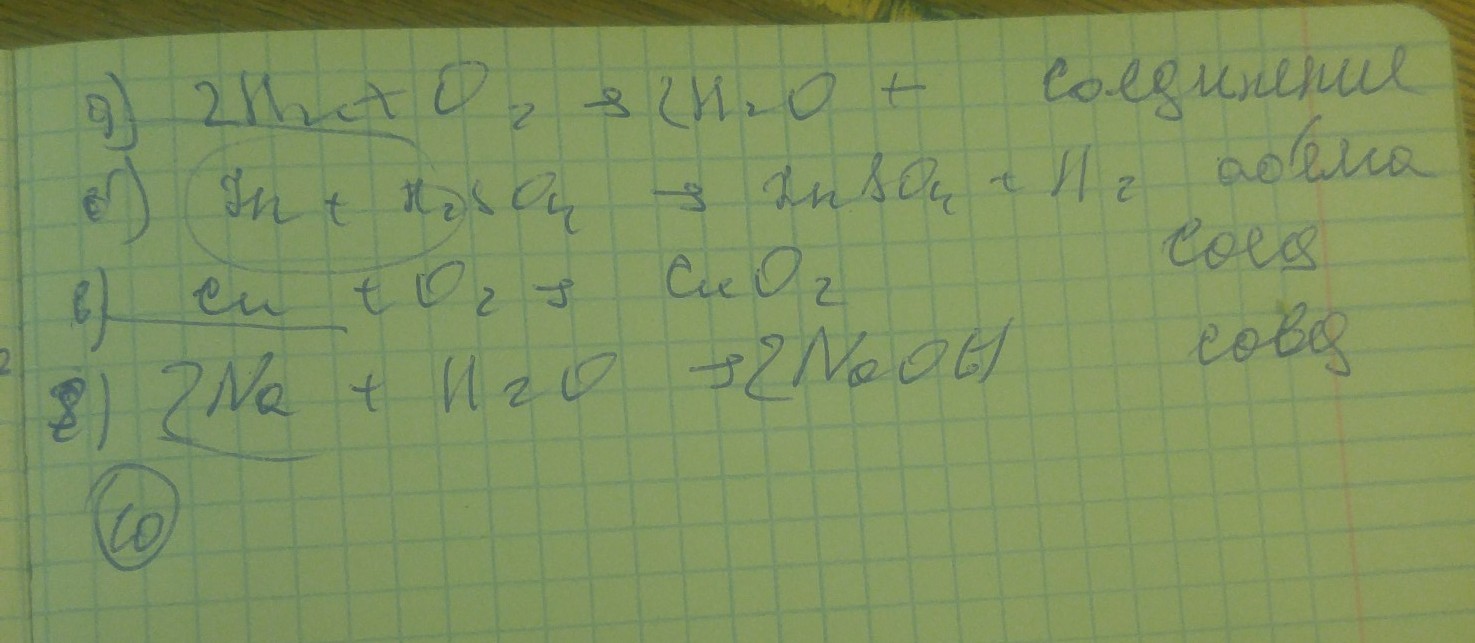 д) 2H₂ + O₂ → 2H₂O + соединение
б) Zn + H₂SO₄ → ZnSO₄ + H₂
в) Cu + O₂ → CuO₂ соед
г) 2Na + H₂O → 2NaOH
10